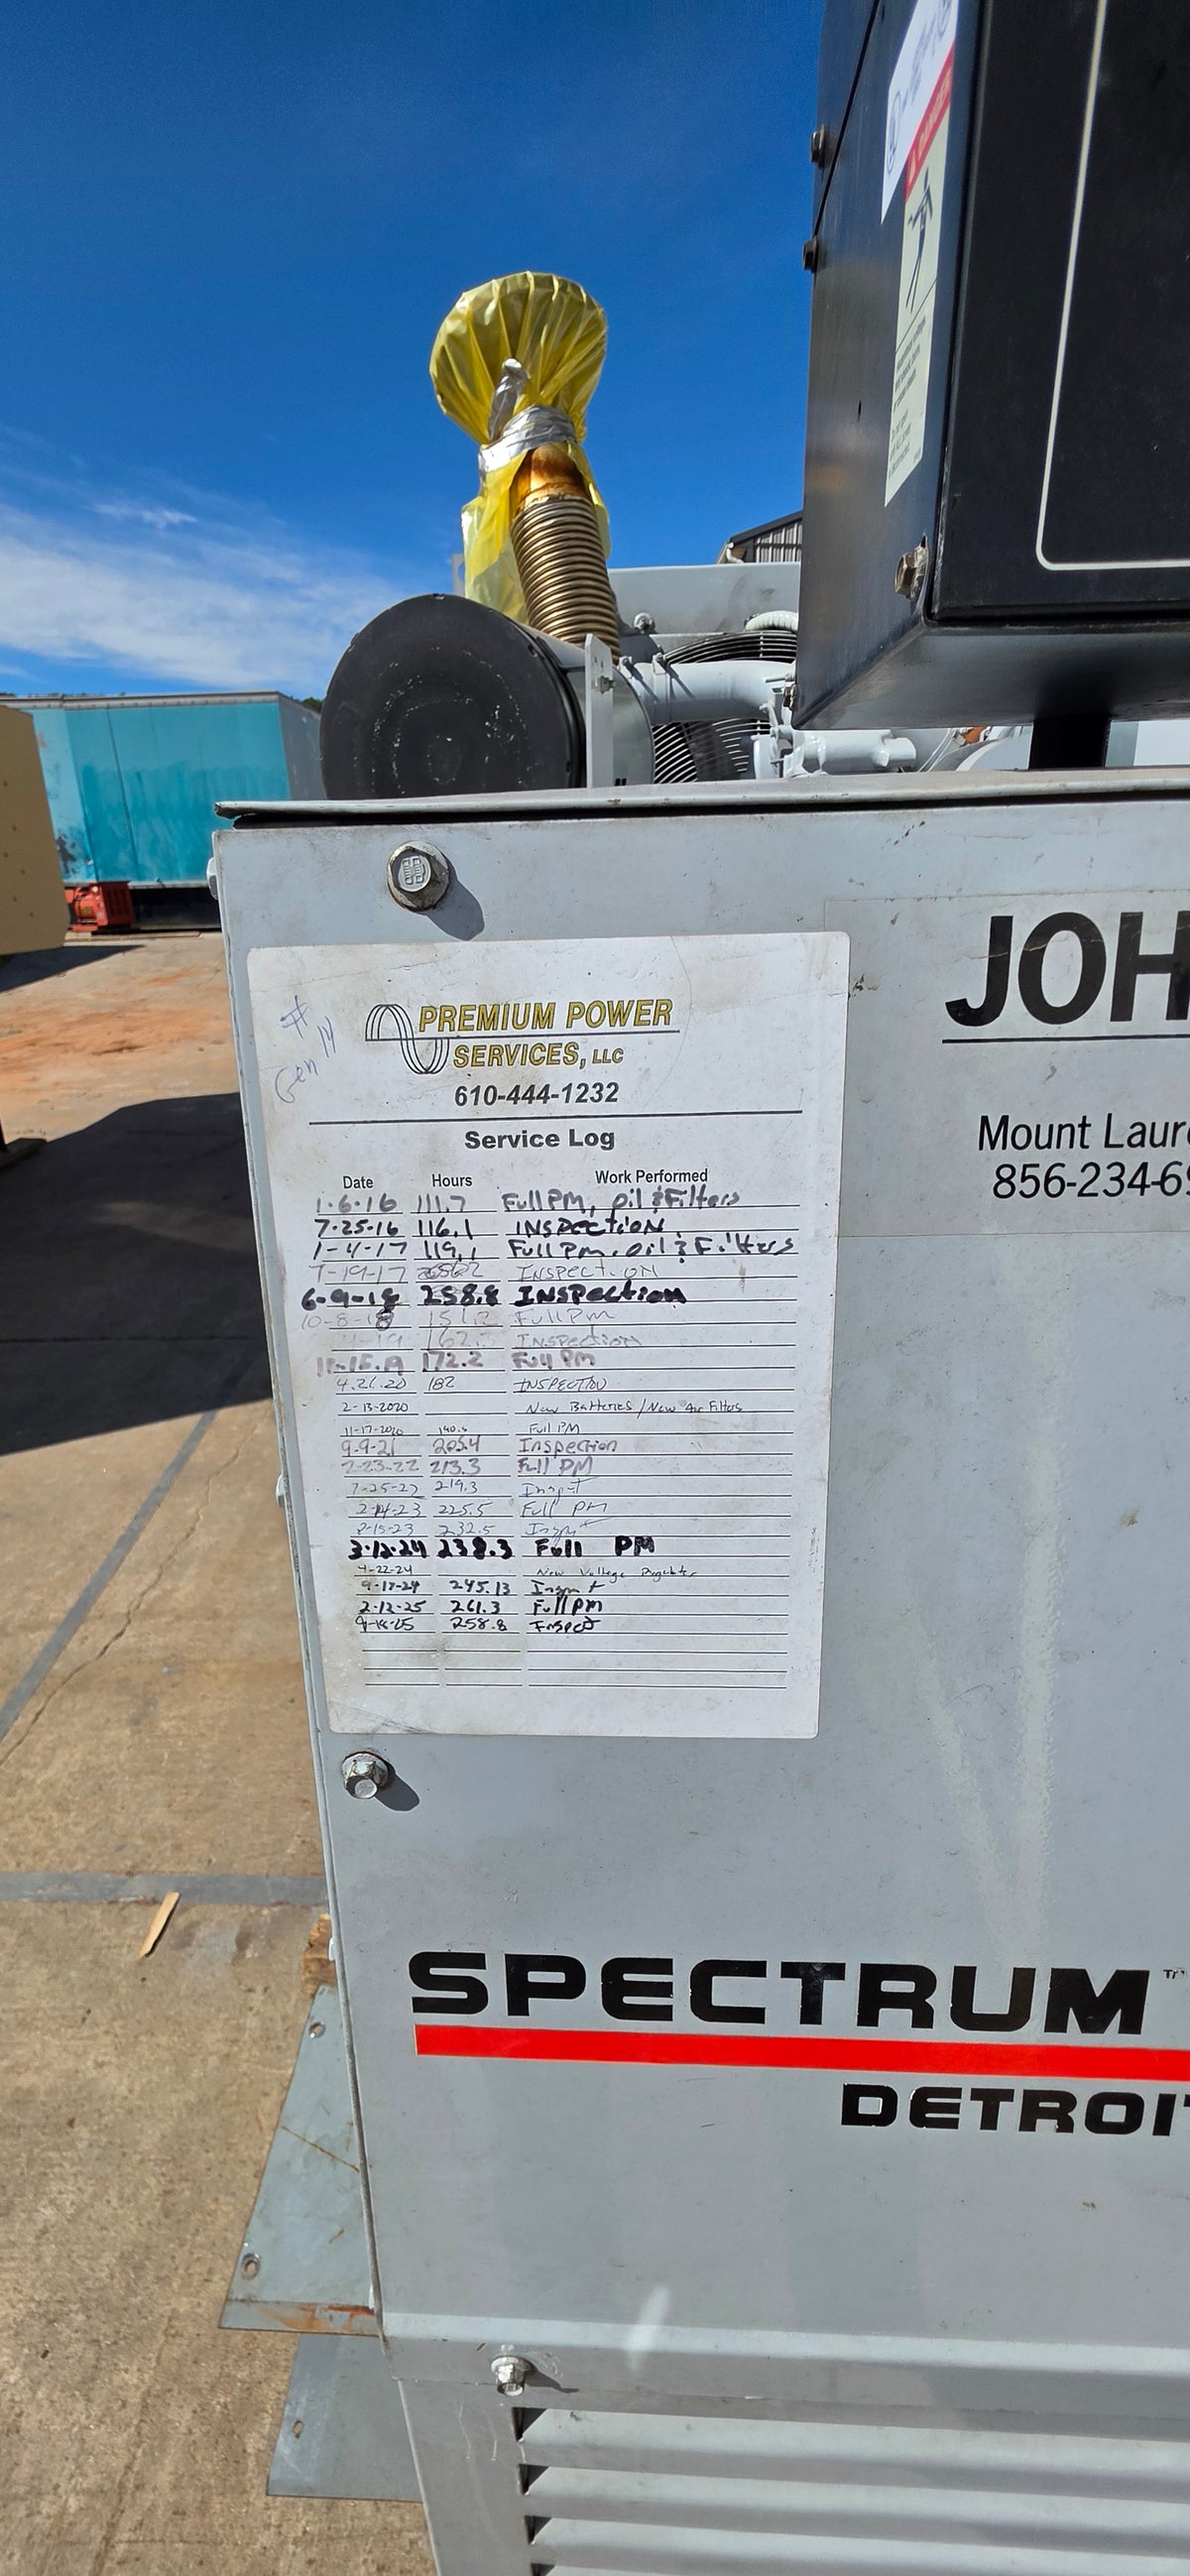 # 14
Gen
PREMIUM POWER
SERVICES, LLC
610-444-1232
Service Log
Date Hours Work Performed
1-6-16 111.7 Full PM, Oil & Filters
7-25-16 116.1 INSPECTION
1-4-17 119.1 Full PM, Oil & Filters
7-19-17 INSPECTION
6-9-18 258.8 INSPection
10-8-18 151.2 Full PM
162. Inspection
172.2 Full PM
4.21.20 182 INSPECTION
2-13-2020 New Batteries / New Air Filters
11-17-2020 190.5 Full PM
9-9-21 205.4 Inspection
2-23-22 213.3 Full PM
7-25-22 219.3 Inspect
2-14-23 225.5 Full PM
8-15-23 232.5 Inspect
3-12-24 238.3 Full PM
4-22-24 New Voltage Regulator
9-17-24 245.13 Inspect
2-12-25 261.3 Full PM
258.8 Inspect
JOH
Mount Laur
856-234-69
SPECTRUM™
DETROIT